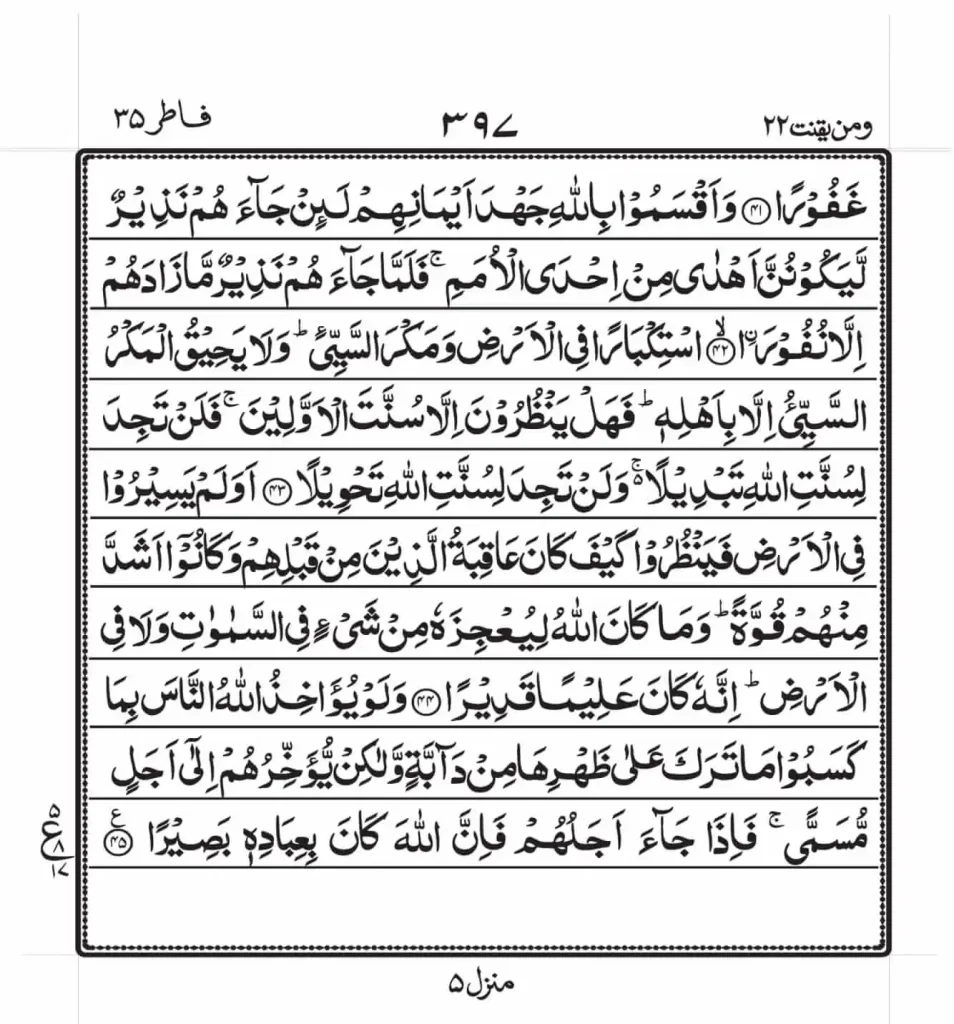 ومن یقنت ۲۲ ۳۹۷ فاطر ۳۵
غَفُوْرًا ۴۱ وَاَقْسَمُوْا بِاللّٰهِ جَهْدَ اَیْمَانِهِمْ لَىِٕنْ جَآءَ هُمْ نَذِیْرٌ
لَّیَكُوْنُنَّ اَهْدٰی مِنْ اِحْدَی الْاُمَمِ ۚ فَلَمَّا جَآءَ هُمْ نَذِیْرٌ مَّا زَادَهُمْ
اِلَّا نُفُوْرَاۨ ۙ۴۲ اسْتِكْبَارًا فِی الْاَرْضِ وَمَكْرَ السَّیِّئِ ؕ وَلَا یَحِیْقُ الْمَكْرُ
السَّیِّئُ اِلَّا بِاَهْلِهٖ ؕ فَهَلْ یَنْظُرُوْنَ اِلَّا سُنَّتَ الْاَوَّلِیْنَ ۚ فَلَنْ تَجِدَ
لِسُنَّتِ اللّٰهِ تَبْدِیْلًا ۚ۬ وَلَنْ تَجِدَ لِسُنَّتِ اللّٰهِ تَحْوِیْلًا ۴۳ اَوَلَمْ یَسِیْرُوْا
فِی الْاَرْضِ فَیَنْظُرُوْا كَیْفَ كَانَ عَاقِبَةُ الَّذِیْنَ مِنْ قَبْلِهِمْ وَكَانُوْۤا اَشَدَّ
مِنْهُمْ قُوَّةً ؕ وَمَا كَانَ اللّٰهُ لِیُعْجِزَهٗ مِنْ شَیْءٍ فِی السَّمٰوٰتِ وَلَا فِی
الْاَرْضِ ؕ اِنَّهٗ كَانَ عَلِیْمًا قَدِیْرًا ۴۴ وَلَوْ یُؤَاخِذُ اللّٰهُ النَّاسَ بِمَا
كَسَبُوْا مَا تَرَكَ عَلٰی ظَهْرِهَا مِنْ دَآبَّةٍ وَّلٰكِنْ یُّؤَخِّرُهُمْ اِلٰۤی اَجَلٍ
مُّسَمًّی ۚ فَاِذَا جَآءَ اَجَلُهُمْ فَاِنَّ اللّٰهَ كَانَ بِعِبَادِهٖ بَصِیْرًا ۴۵ ع
۵
ع ۸
۱۷
منزل ۵